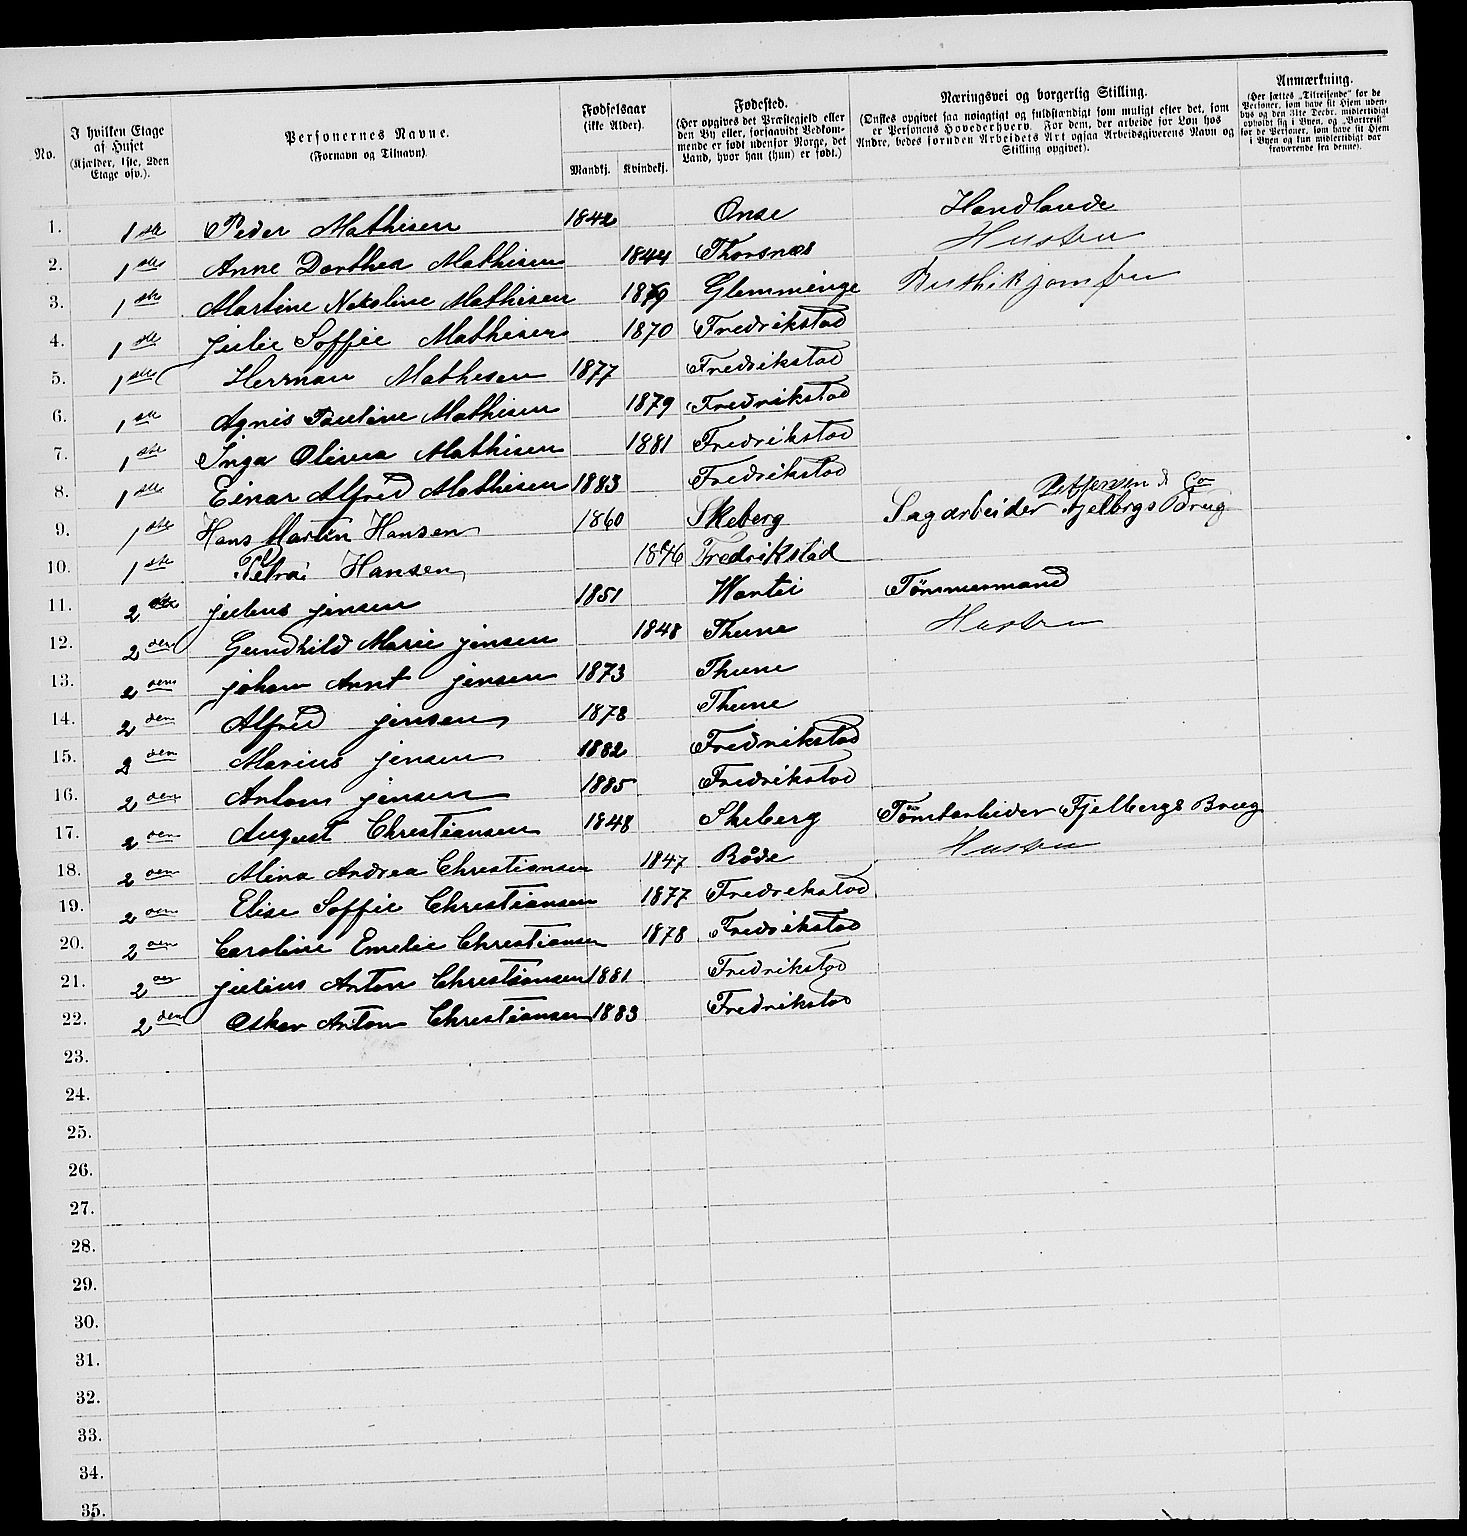 No.
I hvilken Etage af Huset (Kjælder, 1ste, 2den Etage osv.).
Personernes Navne. (Fornavn og Tilnavn).
Fødselsaar (ikke Alder). Mandkj. Kvindekj.
Fødested. (Her opgives det Præstegjeld eller den By eller, forsaavidt Vedkommende er født udenfor Norge, det Land, hvor han (hun) er født.)
Næringsvei og borgerlig Stilling. (Ønskes opgivet saa nøiagtigt og fuldstændigt som muligt efter det, som er Personens Hovederhverv. For dem, der arbeide for Løn hos Andre, bedes foruden Arbeidets Art ogsaa Arbeidsgiverens Navn og Stilling opgivet).
Anmærkning. (Her sættes „Tilreisende“ for de Personer, som have sit Hjem udenbys og den 31te Decbr. midlertidigt opholdt sig i Byen, og „Bortreist“ for de Personer, som have sit Hjem i Byen og kun midlertidigt var fraværende fra denne).
1. 1ste Peder Mathisen 1842 Onsø Handlande
2. 1ste Anne Dorthea Mathisen 1844 Thorsnæs Hustru
3. 1ste Martine Nikoline Mathisen Glemminge
4. 1ste Julie Soffie Mathisen 1870 Fredrikstad
5. 1ste Herman Mathesen 1877 Fredrikstad
6. 1ste Agnis Pauline Mathisen 1879 Fredrikstad
7. 1ste Inga Olivia Mathisen 1881 Fredrikstad
8. 1ste Einar Alfred Mathisen 1883 Fredrikstad
9. 1ste Hans Martin Hansen 1860 Skeberg Sagarbeider Brug & Co
10. 1ste Petra Hansen Fredrikstad
11. 2 Julius Jensen 1851 Tømmermand
12. 2den Gundhild Marie Jensen 1848 Thune Hustru
13. 2den Johan Arnt Jensen 1873 Thune
14. 2den Alfred Jensen 1878 Thune
15. 2den Marius Jensen 1882 Fredrikstad
16. 2den Anton Jensen 1885 Fredrikstad
17. 2den August Christiansen 1848 Skeberg Tomtarbeider Fjelbergs Brug
18. 2den Mina Andrea Christiansen 1847 Råde Hustru
19. 2den Elise Soffie Christiansen 1877 Fredrekstad
20. 2den Caroline Emelie Christiansen 1878 Fredrikstad
21. 2den Julius Anton Christiansen 1881 Fredrikstad
22. 2den Oskar Anton Christiansen 1883 Fredrikstad
23.
24.
25.
26.
27.
28.
29.
30.
31.
32.
33.
34.
35.